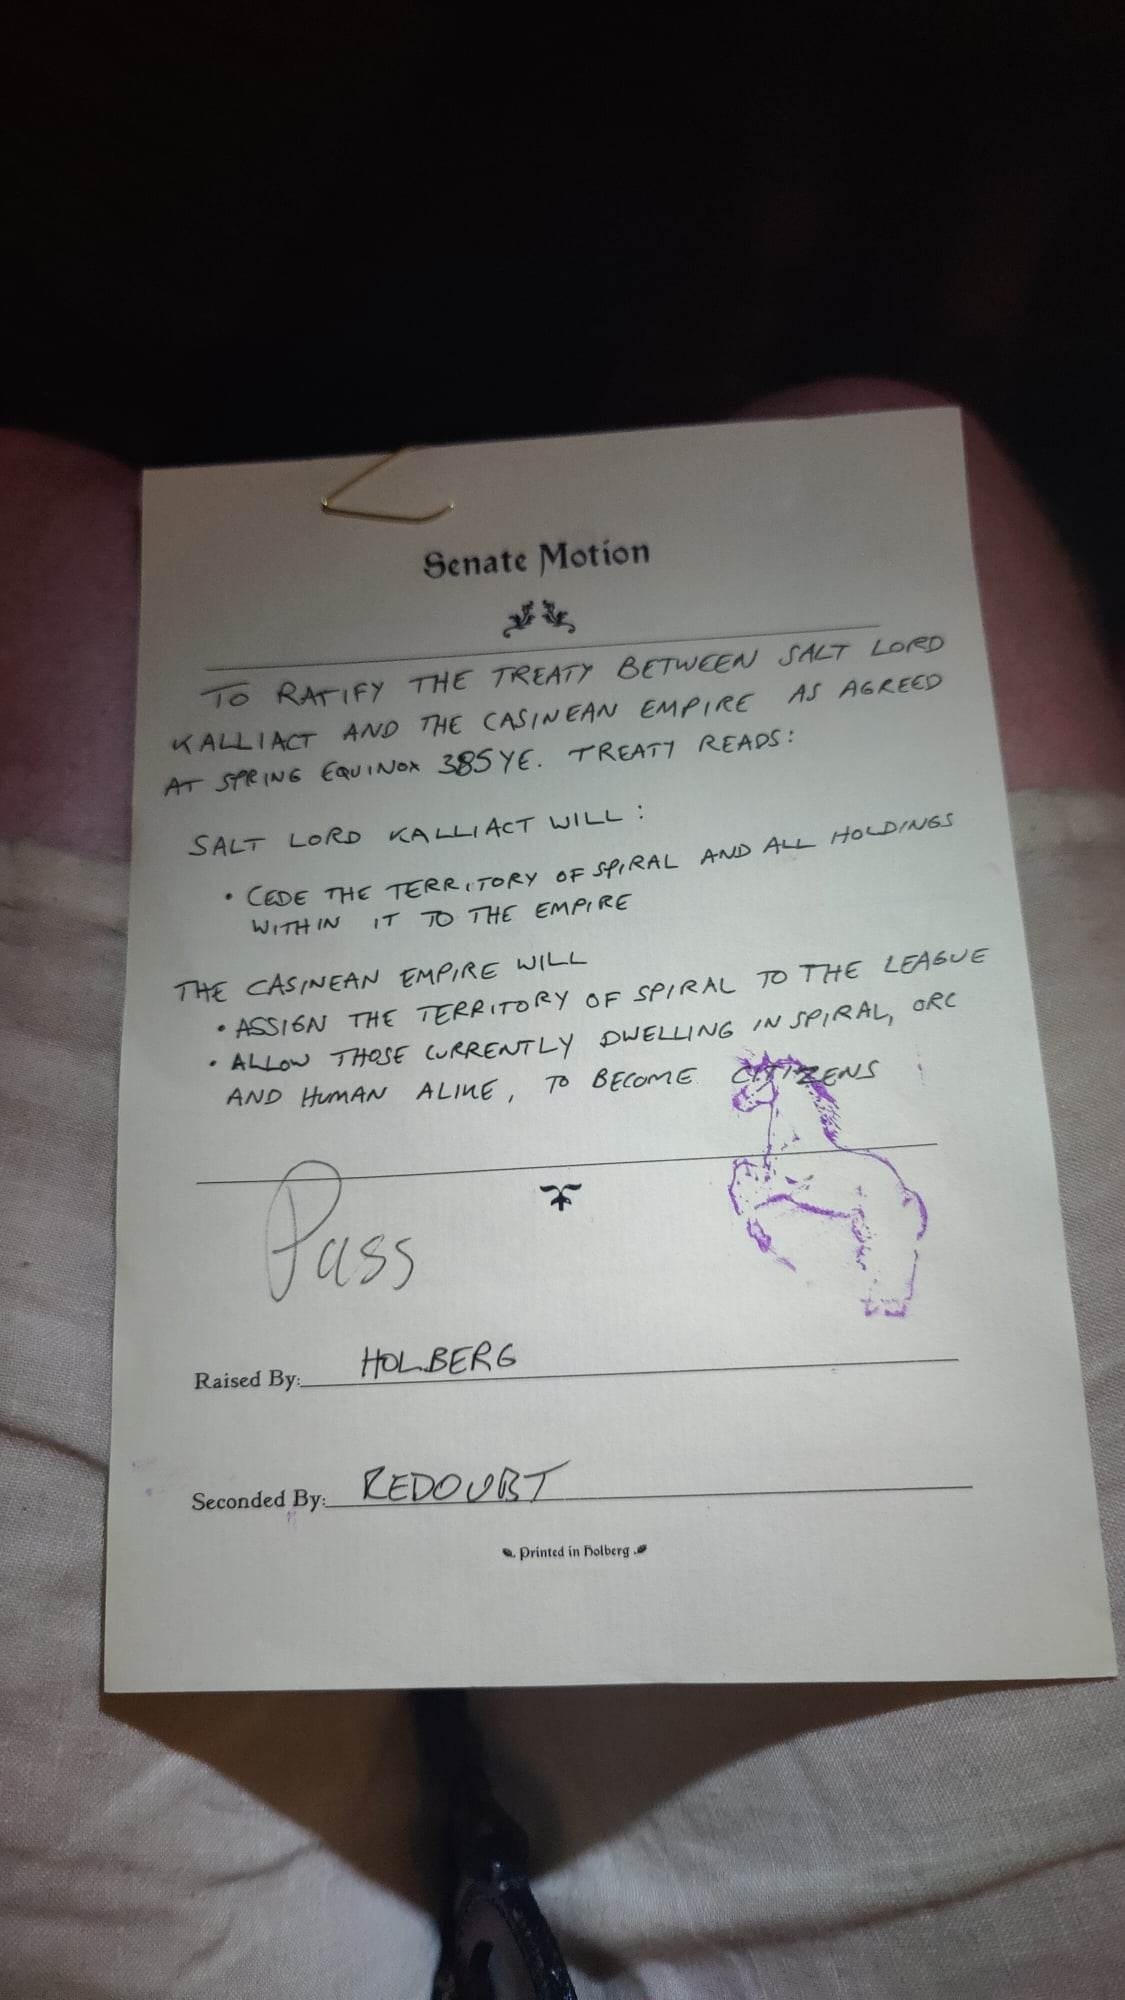 Senate Motion
TO RATIFY THE TREATY BETWEEN SALT LORD
KALLIACT AND THE CASINEAN EMPIRE AS AGREED
AT SPRING EQUINOX 385YE. TREATY READS:
SALT LORD KALLIACT WILL:
• CEDE THE TERRITORY OF SPIRAL AND ALL HOLDINGS
WITHIN IT TO THE EMPIRE
THE CASINEAN EMPIRE WILL
• ASSIGN THE TERRITORY OF SPIRAL TO THE LEAGUE
• ALLOW THOSE CURRENTLY DWELLING IN SPIRAL, ORC
AND HUMAN ALIKE, TO BECOME CITIZENS
Pass
Raised By: HOLBERG
Seconded By: REDOUBT
Printed in Holberg